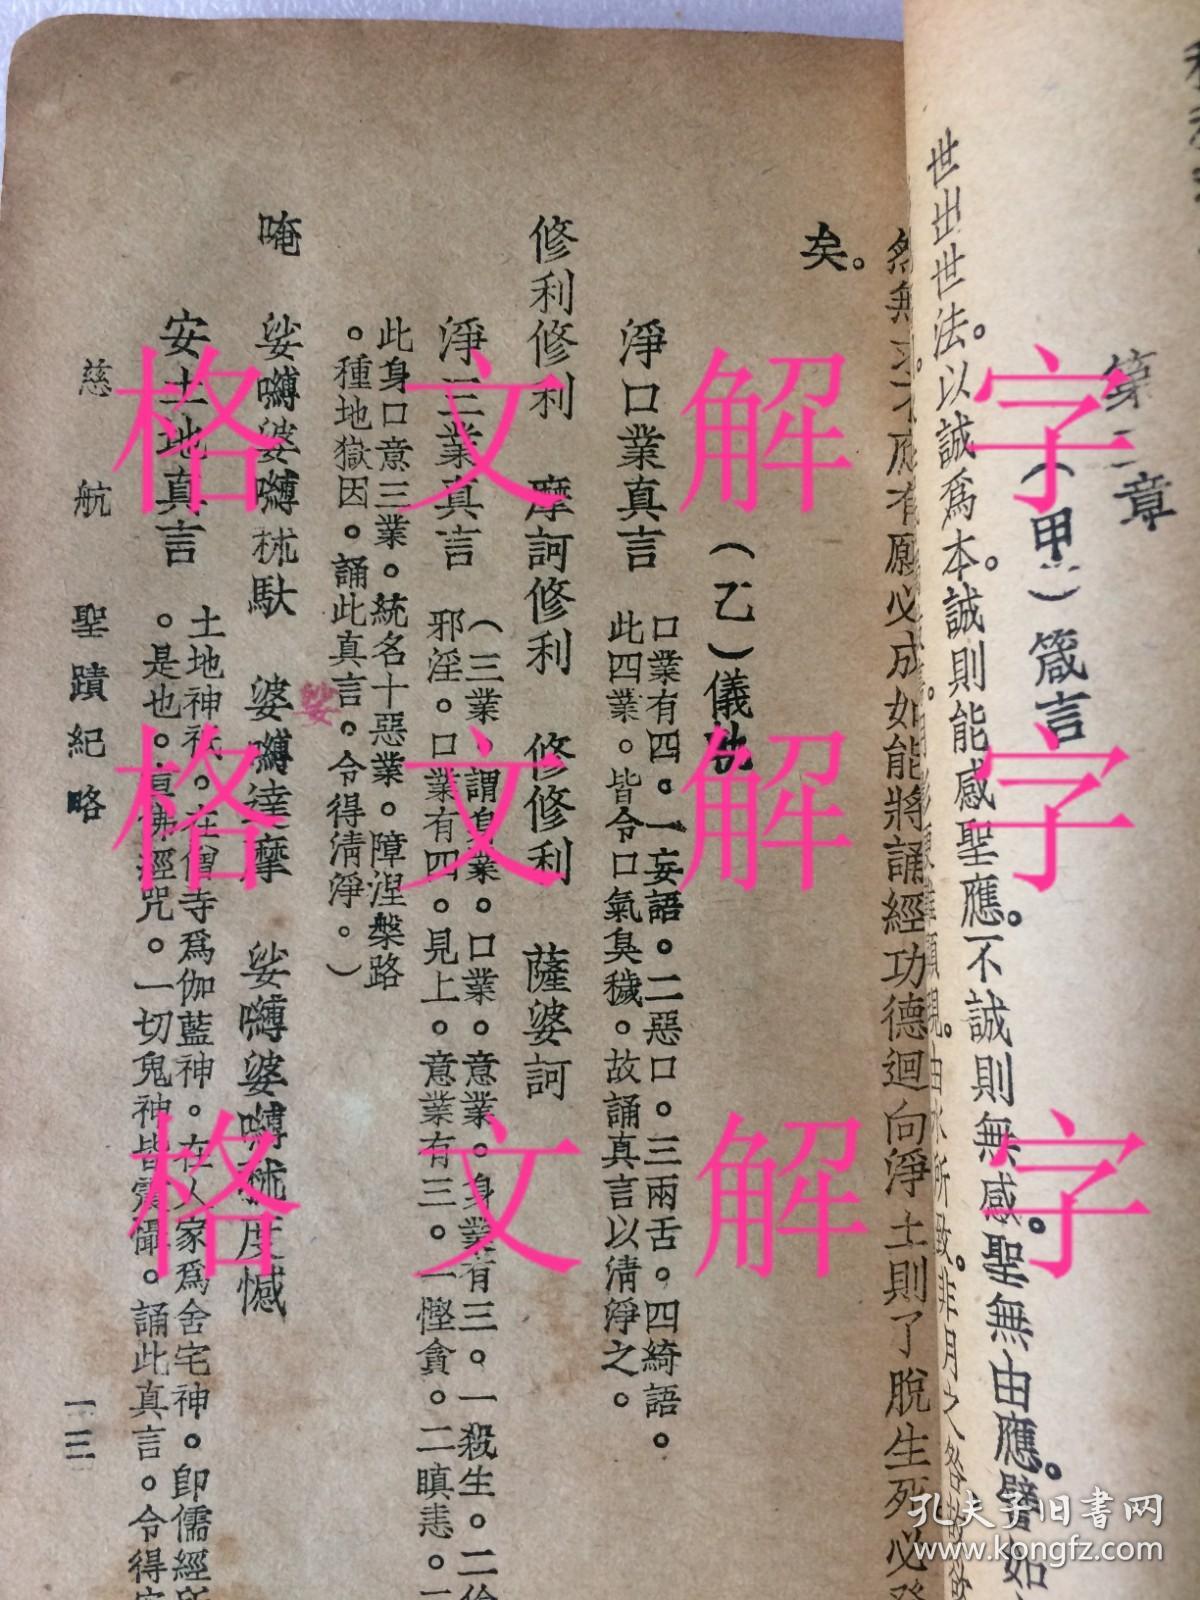 第二章
(甲)箴言
世出世法。以誠爲本。誠則能感聖應。不誠則無感。聖無由應。譬如
由水所致。非月之咎
應有願必成如能將誦經功德迴向淨土則了脫生死必
矣。
(乙)儀軌
淨口業真言
口業有四。一妄語。二惡口。三兩舌。四綺語。
此四業。皆令口氣臭穢。故誦真言以清淨之。
修利修利 摩訶修利 修修利 薩婆訶
淨三業真言
(三業。謂身業。口業。意業。身業有三。一殺生。二偷
邪淫。口業有四。見上。意業有三。一慳貪。二瞋恚。三
此身口意三業。統名十惡業。障湼槃路
。種地獄因。誦此真言。令得清淨。)
唵 娑嚩婆嚩秫馱 婆嚩達摩 娑嚩婆嚩秫度憾
娑
安土地真言
土地神祇。在僧寺爲伽藍神。在人家爲舍宅神。卽儒經所
。是也。宣佛經咒。一切鬼神皆震懾。誦此真言。令得安
慈航聖蹟紀略
一三
格文解字
格文解字
格文解字
孔夫子旧书网
www.kongfz.com